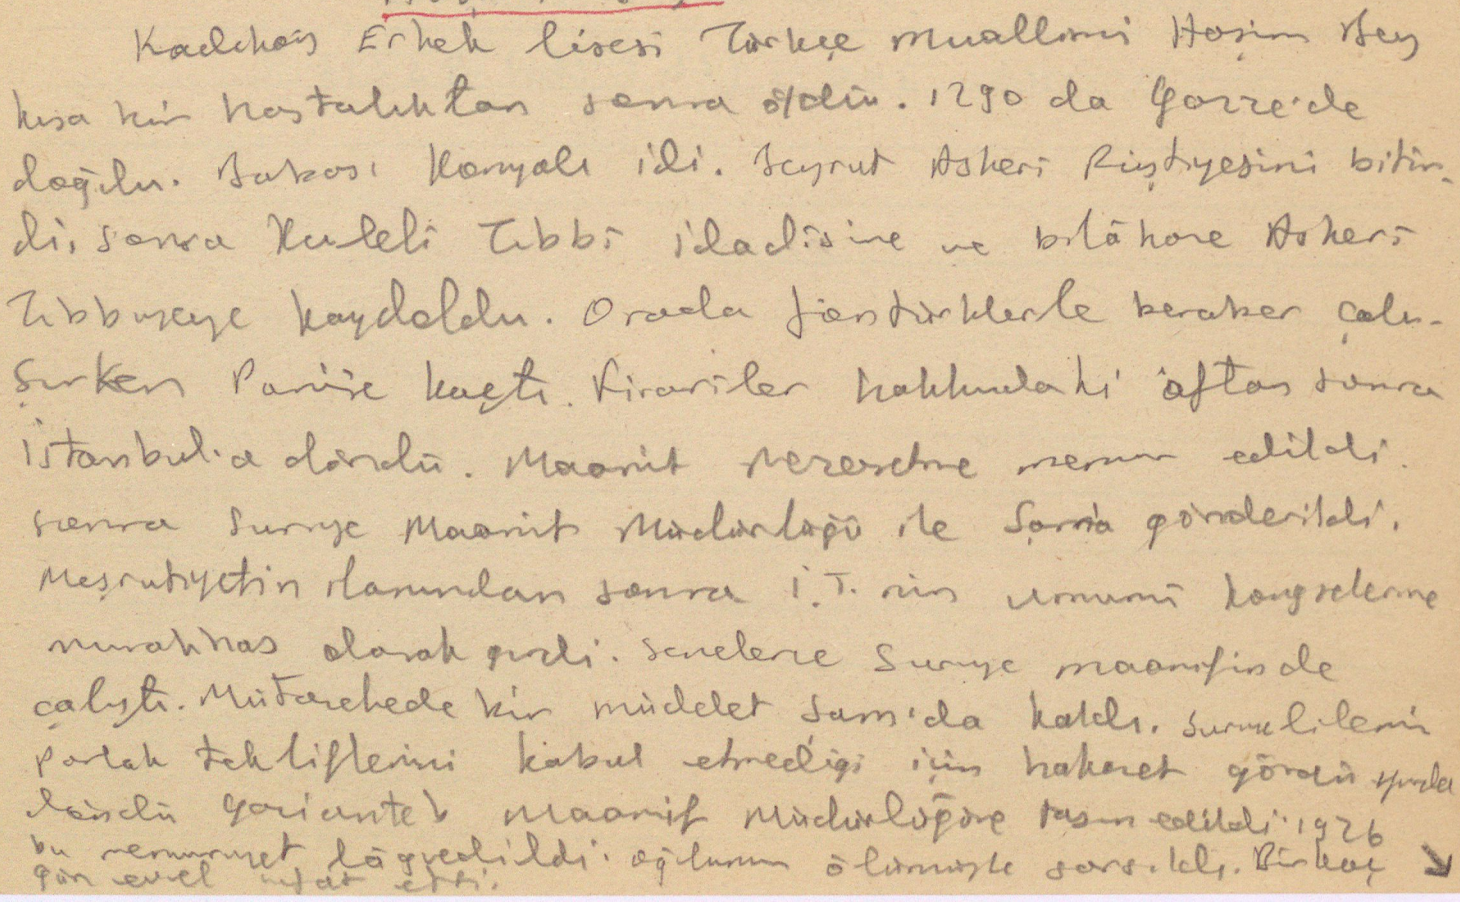 Kadıköy Erkek lisesi Türkçe muallimi Haşim Bey
kısa bir hastalıktan sonra öldü. 1290 da Gazze'de
doğdu. Babası Konyalı idi. Beyrut Askeri Rüştiyesini bitir-
di, sonra Kuleli Tıbbi idadisine ve bilâhare Askeri
Tıbbiyeye kaydoldu. Orada Jöntürklerle beraber çalı-
şırken Parise kaçtı. Firariler hakkındaki aftan sonra
İstanbul'a döndü. Maarif Nezaretine memur edildi.
sonra Suriye Maarif Müdürlüğü ile Şama gönderildi.
Meşrutiyetin ilanından sonra İ.T. nin umumi kongrelerine
murahhas olarak girdi. Senelerce Suriye maarifinde
çalıştı. Mütarekede bir müddet Şam'da kaldı. Suriyelilerin
parlak tekliflerini kabul etmediği için hakaret gördü yurda
döndü Gaziantep Maarif Müdürlüğüne tayin edildi. 1926
bu memuriyet lağvedildi. oğlunun ölümüyle sarsıldı. Birkaç
gün evvel vefat etti.